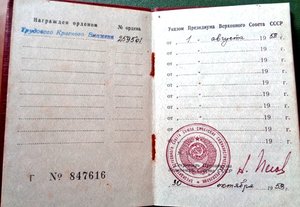 Награжден орденом
№ ордена
Трудового Красного Знамени
259561
Г № 847616
Указом Президиума Верховного Совета СССР
от 1 августа 1958 г.
от " 19 г.
от " 19 г.
от " 19 г.
от " 19 г.
от " 19 г.
от " 19 г.
от " 19 г.
30 октября 1958.